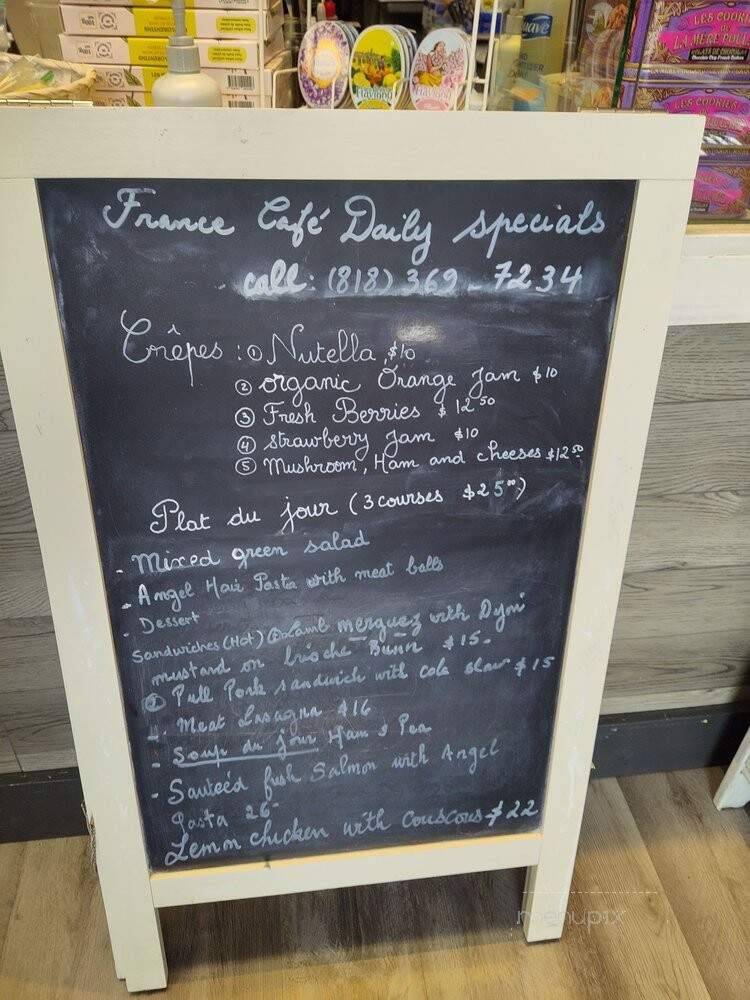 LES COOKIES
DE
LA MÈRE POULARD
ÉCLATS DE CHOCOLAT
Chocolate Chip French Cookies
LES COOKIES
Suave
Flavigny
Flavigny
France Café Daily specials
call: (818) 369-7234
Crêpes : ① Nutella $10
② organic Orange Jam $10
③ Fresh Berries $12 50
④ strawberry Jam $10
⑤ Mushroom, Ham and cheeses $12 50
Plat du jour (3 courses $25 00)
- Mixed green salad
- Angel Hair Pasta with meat balls
- Dessert
Sandwiches (Hot) ① Lamb merguez with Dijni
mustard on brioche Bunn $15-
② Pull Pork sandwich with cole slaw $15
- Meat Lasagna $16
- Soup du jour Ham & Pea
- Sauteéd fish Salmon with Angel
Pasta 26-
Lemm chicken with couscous $22
menupix